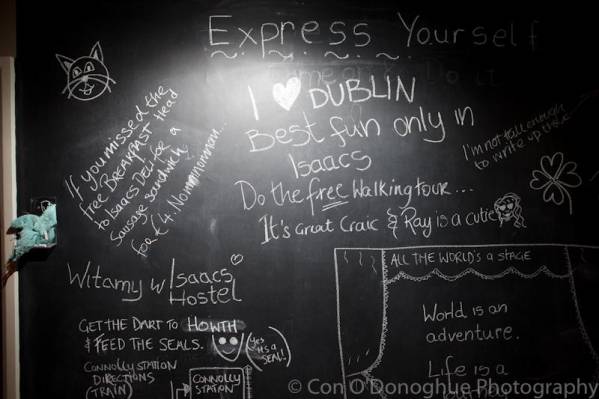 Express Yourself
I ♥ DUBLIN
Best fun only in
Isaacs
Do the free Walking tour...
It's Great Craic & Ray is a cutie
If you missed the
free BREAKFAST Head
to Isaacs Deli for a
Sausage sandwich
for €4. Nomnomnom...
I'm not tall enough
to write up there
Witamy w Isaacs
Hostel
GET THE DART TO HOWTH
& FEED THE SEALS.
(Yes
it's a
SEAL!)
CONNOLLY STATION
DIRECTIONS
(TRAIN)
CONNOLLY
STATION
ALL THE WORLD'S a STAGE
World is an
adventure.
Life is a
© Con O'Donoghue Photography